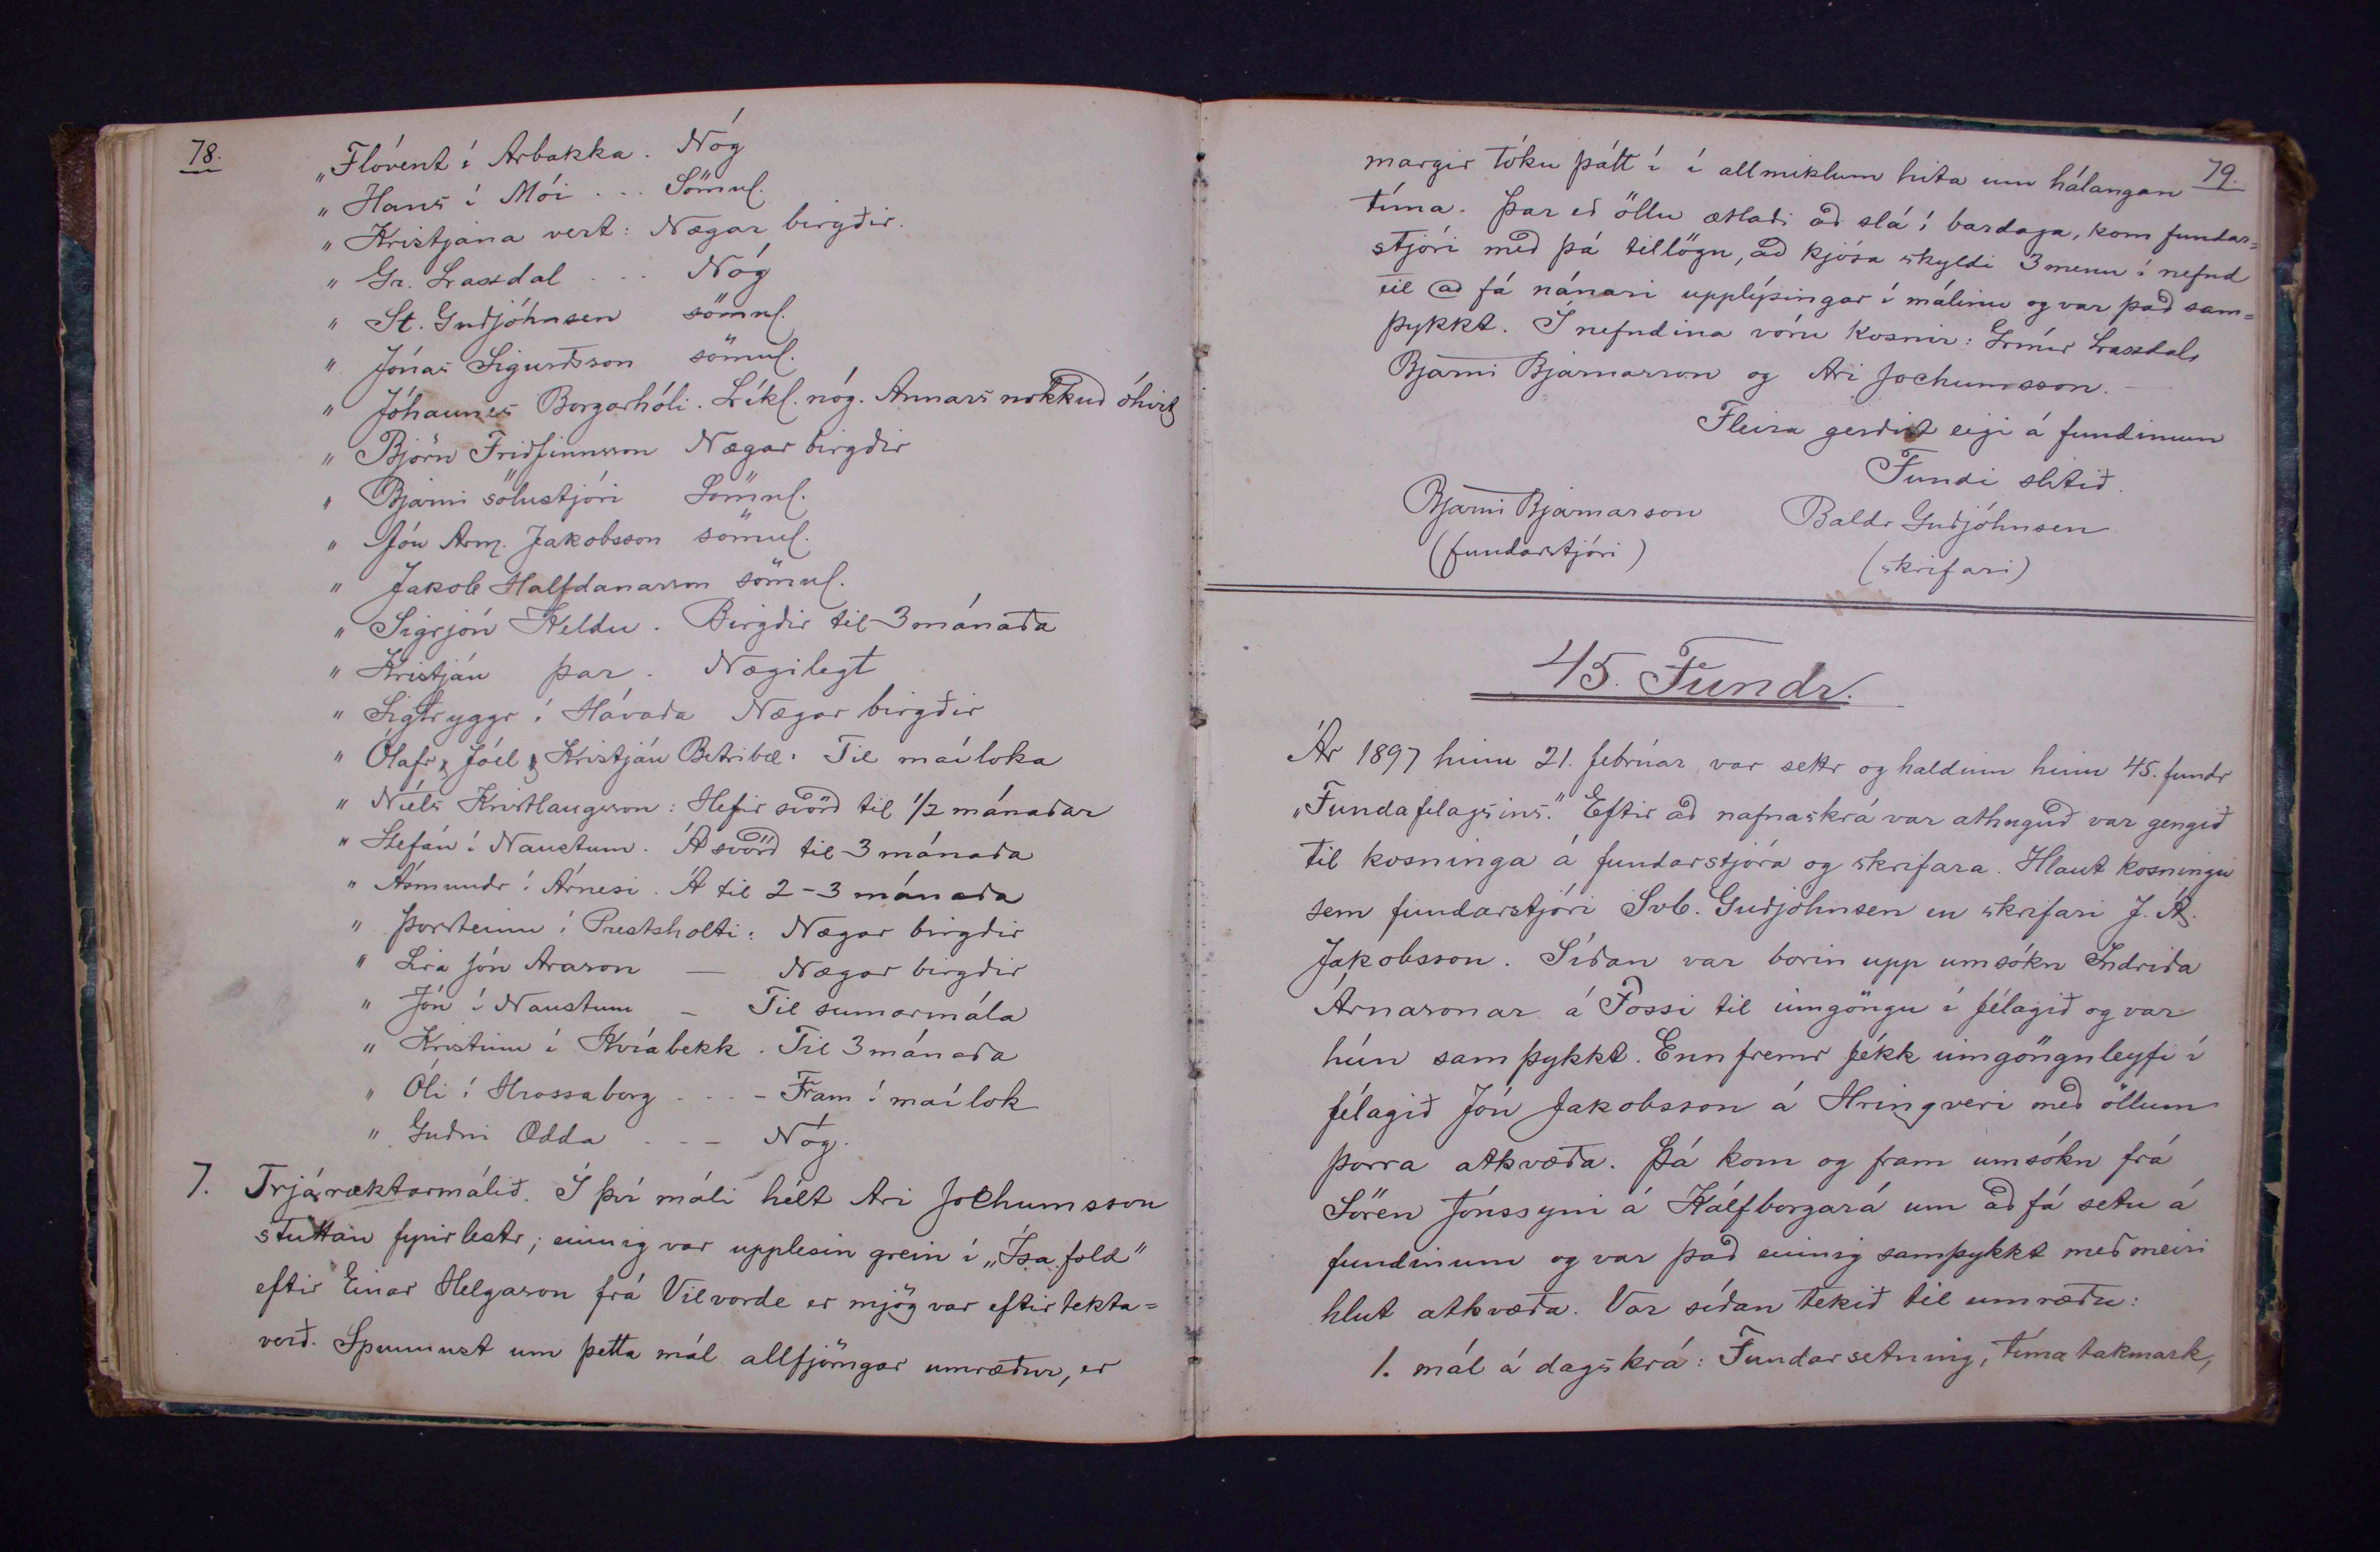 78.
„ Flóvent í Árbakka. Nóg
„ Hans í Mói ... Sömul.
„ Kristjana vert: Nægar birgðir.
„ Gr. Laxdal ... Nóg
„ St. Guðjóhnsen sömul.
„ Jónas Sigurðsson sömul.
„ Jóhannes Borgarhóli. Líkl. nóg. Annars nokkuð óhvist
„ Björn Friðfinnsson Nægar birgðir
„ Bjarni sölustjóri Sömul.
„ Jón Arm. Jakobsson sömul.
„ Jakob Halfdanarson sömul.
„ Sigrjón Keldu. Birgðir til 3 mánaða
„ Kristján þar. Nægilegt
„ Sigtryggr í Hávaða Nægar birgðir
„ Ólafr, Jóel & Kristján Betribæ: Til maíloka
„ Níels Kristlaugsson: Hefir svörð til 1/2 mánaðar
„ Stefán í Naustum. Á svörð til 3 mánaða
„ Ásmundr í Árnesi. Á til 2-3 mánaða
„ Þorsteinn í Prestsholti: Nægar birgðir
„ Síra Jón Arason — Nægar birgðir
„ Jón í Naustum – Til sumarmála
„ Kristinn í Kvíabekk. Til 3 mánaða
„ Óli í Hrossaborg ... – Fram í maílok
„ Guðni Odda ... – Nóg.
7. Trjáræktarmálið. Í því máli hélt Ari Jochumsson
stuttan fyrirlestr; einnig var upplesin grein í „Ísafold"
eftir Einar Helgason frá Vilvorde er mjög var eftirtekta=
verð. Spunnust um þetta mál allfjörugar umræður, er
79.
margir tóku þátt í í allmiklum hita um hálangan
tíma. Þar eð öllu ætlaði að slá í bardaga, kom fundar=
stjóri með þá tillögu, að kjósa skyldi 3 menn í nefnd
til að fá nánari upplýsingar í málinu og var það sam=
þykkt. Í nefndina vóru kosnir: Grímur Laxdal,
Bjarni Bjarnarson og Ari Jochumsson. —
Fleira gerðist eigi á fundinum
Fundi slitið.
Bjarni Bjarnarson Baldr Guðjóhnsen
(fundarstjóri) (skrifari)
45. Fundr.
Ár 1897 hinn 21. febrúar var settr og haldinn hinn 45. fundr
„Fundafelagsins." Eftir að nafnaskrá var athuguð var gengið
til kosninga á fundarstjóra og skrifara. Hlaut kosningu
sem fundarstjóri Svb. Guðjohnsen en skrifari J. Á.
Jakobsson. Síðan var borin upp umsókn Indriða
Árnasonar á Fossi til inngöngu í félagið og var
hún samþykkt. Ennfremr fékk inngönguleyfi í
félagið Jón Jakobsson á Hringveri með öllum
þorra atkvæða. Þá kom og fram umsókn frá
Sören Jónssyni á Kálfborgará um að fá setu á
fundinum og var það einnig samþykkt með meiri
hlut atkvæða. Var síðan tekið til umræðu:
1. mál á dagskrá: Fundarsetning, tímatakmark,